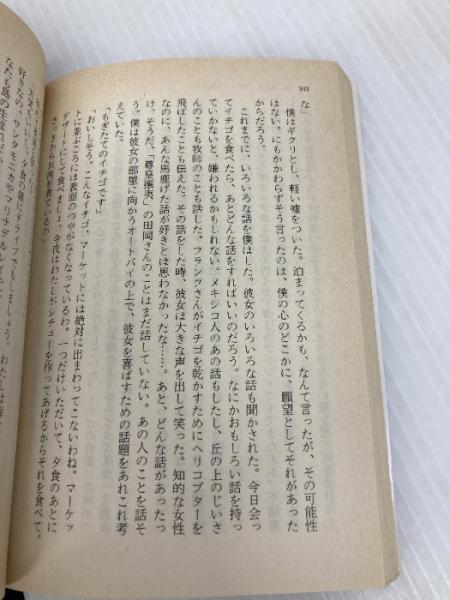 242
な」
　僕はギクリとし、軽い嘘をついた。泊まってくるかも、なんて言ったが、その可能性
はない。にもかかわらずそう言ったのは、僕の心のどこかに、願望としてそれがあった
からだろう。
　これまでに、いろいろな話を僕はした。彼女のいろいろな話も聞かされた。今日会っ
てイチゴを食べたら、あとどんな話をすればいいのだろう。なにかおもしろい話を持っ
ていかないと、嫌われるかもしれない。メキシコ人のあの話もしたし、丘の上のじいさ
んのことも牧師のことも話した。フランクさんがイチゴを乾かすためにヘリコプターを
飛ばしたことも伝えた。その話をした時、彼女は大きな声を出して笑った。知的な女性
なのに、あんな馬鹿げた話が好きとは思わなかったな……。あと、どんな話があったっ
け。そうだ、「尊皇攘夷」の田岡さんのことはまだ話していない。あの人のことを話そ
う。僕は彼女の部屋に向かうオートバイの上で、彼女を喜ばすための話題をあれこれ考
えていた。
「もぎたてのイチゴです」
「おいしそう。こんなイチゴ、マーケットには絶対に出まわってこないわね。マーケッ
トに並ぶころには表面のつやがなくなっているわ。一つだけいただいて、夕食のあとに
デザートにして食べましょ。今夜はわたしがシチューを作ってあげるからそれを食べて。
さっきからお肉を煮ているの」
夕食の前にドライブでもしましょう。わたしは海が
好きなの。サンタモニカやマリナデルレイ